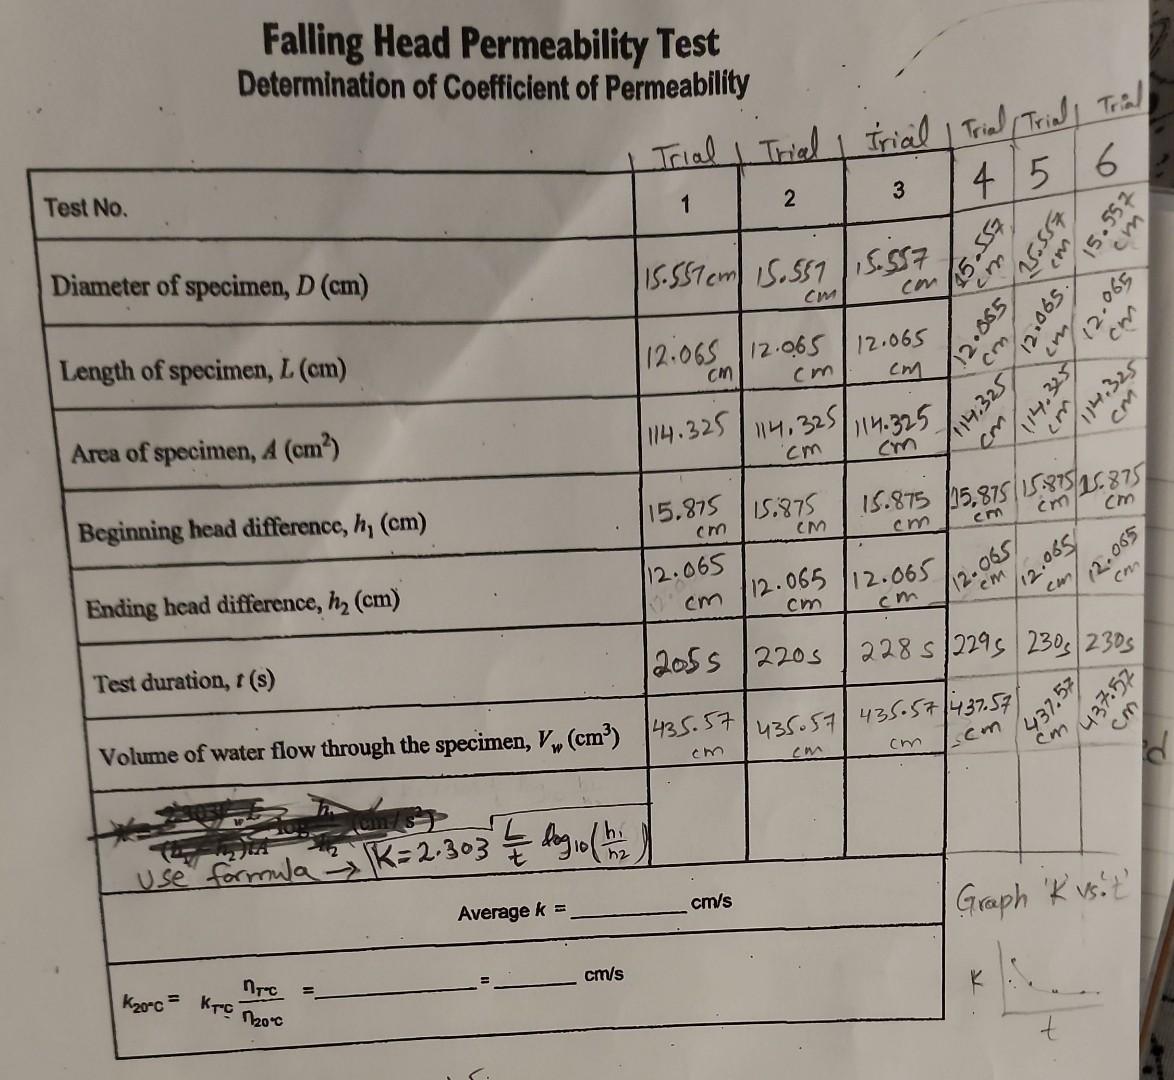 Falling Head Permeability Test
Determination of Coefficient of Permeability
Trial Trial Trial Trial Trial Trial
Test No. 1 2 3 4 5 6
Diameter of specimen, D (cm) 15.557 cm 15.557 cm 15.557 cm 15.557 cm 15.557 cm 15.557 cm
Length of specimen, L (cm) 12.065 cm 12.065 cm 12.065 cm 12.065 cm 12.065 cm 12.065 cm
Area of specimen, A (cm²) 114.325 114.325 cm 114.325 cm 114.325 cm 114.325 cm 114.325 cm
Beginning head difference, h₁ (cm) 15.875 cm 15.875 cm 15.875 cm 15.875 cm 15.875 cm 15.875 cm
Ending head difference, h₂ (cm) 12.065 cm 12.065 cm 12.065 cm 12.065 cm 12.065 cm 12.065 cm
Test duration, t (s) 205 s 220 s 228 s 229 s 230 s 230 s
Volume of water flow through the specimen, Vw (cm³) 435.57 cm 435.57 cm 435.57 cm 437.57 cm 437.57 cm 437.57 cm
use formula → K = 2.303 L/t log10 (h1/h2)
Average k = ________ cm/s
Graph 'K' vs. 't'
k20°C = kT°C ηT°C/η20°C = ________ = ________ cm/s
K
t